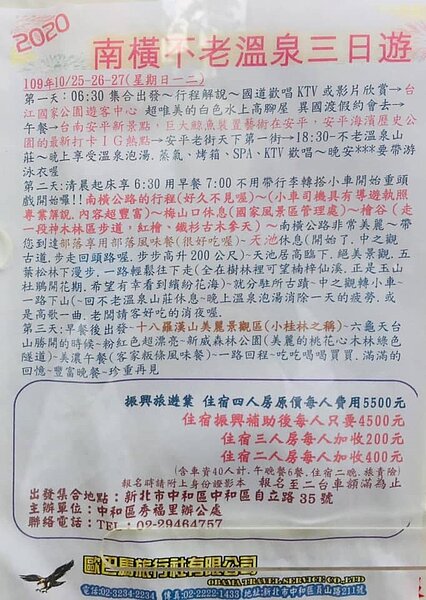 2020
南橫不老溫泉三日遊
109年10/25-26-27(星期日一二)
第一天：06:30 集合出發～行程解說～國道歡唱 KTV 或影片欣賞→台
江國家公園遊客中心 超唯美的白色水上高腳屋 異國渡假約會去→
午餐→台南安平新景點，巨大鯨魚裝置藝術在安平，安平海濱歷史公
園的最新打卡IG熱點→安平老街天下第一街→18:30-不老溫泉山
莊～晚上享受溫泉泡湯、蒸氣、烤箱、SPA、KTV 歡唱～晚安***要帶游
泳衣喔
第二天：清晨起床享 6:30 用早餐 7:00 不用帶行李轉搭小車開始重頭
戲開始囉!!南橫公路的行程(好久不見喔)～(小車司機具有導遊執照
專業解說，內容超豐富)～梅山口休息(國家風景區管理處)～檜谷(走
一段神木林區步道，紅檜、鐵杉古木參天)～南橫公路非常美麗～帶
您到達部落享用部落風味餐(很好吃喔)～天池休息(開始了，中之觀
古道，步走回頭路喔，步步高升 200 公尺)～天池居高臨下，絕美景觀，五
葉松林下漫步，一路輕鬆往下走(全在樹林裡可望楠梓仙溪，正是玉山
杜鵑開花期，希望有幸看到繽紛花海)～就分駐所古蹟～中之觀轉小車～
一路下山(～回不老溫泉山莊休息～晚上溫泉泡湯消除一天的疲勞，或
是高歌一曲，老闆請客好吃的消夜喔.
第三天：早餐後出發～十八羅漢山美麗景觀區(小桂林之稱)～六龜天台
山勝開的時候～粉紅色超漂亮～新威森林公園(美麗的桃花心木林綠色
隧道)～美濃午餐(客家粄條風味餐)～一路回程～吃吃喝喝買買，滿滿的
回憶～豐富晚餐～珍重再見
振興旅遊業 住宿四人房原價每人費用5500元
住宿振興補助後每人只要4500元
住宿三人房每人加收200元
住宿二人房每人加收400元
(含車資40人計.午晚餐6餐.住宿二晚.旅責險)
報名時請附上身份證影本 報名至二台車額滿為止
出發集合地點：新北市中和區中和區自立路 35 號
主辦單位：中和區秀福里辦公處
聯絡電話：TEL：02-29464757
歐巴馬旅行社有限公司
OBAMA TRAVEL SERVICE CO.,LTD
電話:02-3234-2234 傳真:02-2222-1433 地址:新北市中和區員山路211號